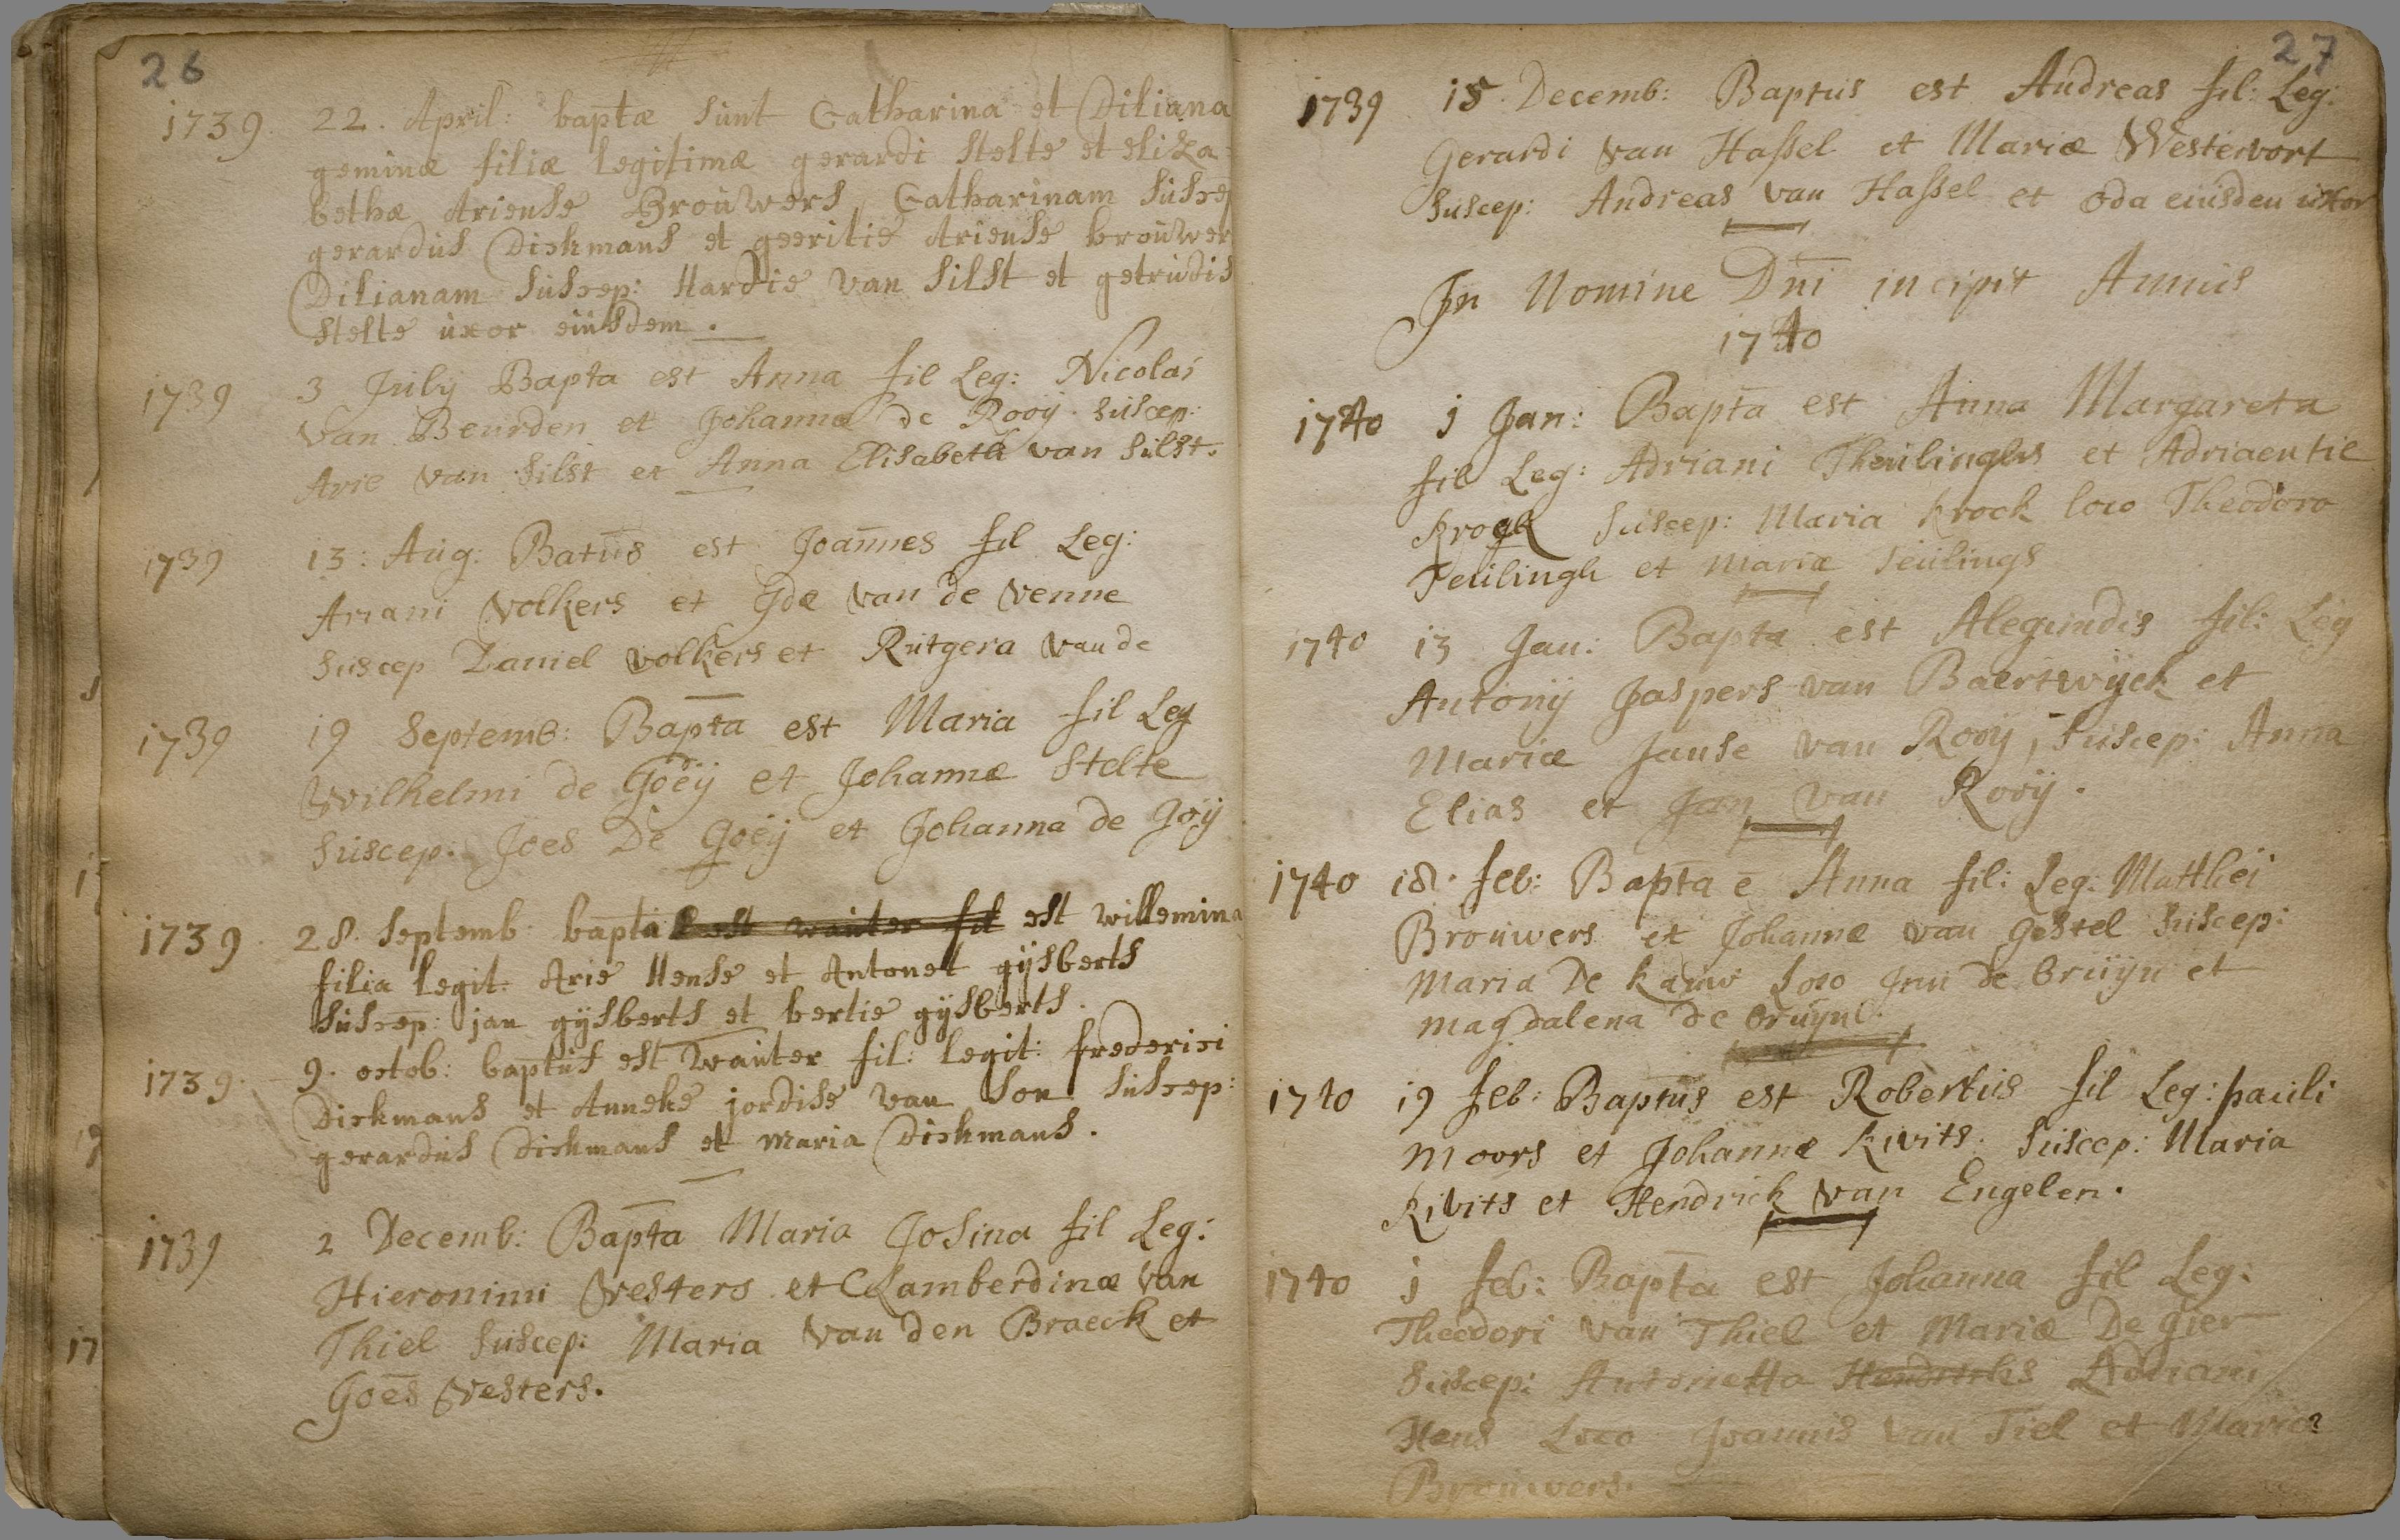 26
1739. 22. April: baptæ sunt Catharina et Diliana
geminæ filiæ legitimæ gerardi stelte et eliza-
bethæ Ariense Brouwers Catharinam suscep
gerardus Dickmans et geeritie Ariense brouwer
Dilianam suscep: Hardie van Silst et getrudis
stelte uxor eiusdem.
1739 3 July Bapta est Anna fil Leg: Nicolai
Van Beurden et Johannæ de Rooÿ. suscep:
Arie van Silst et Anna Elisabeth van Silst.
1739 13: Aug: Batus est Joannes fil Leg:
Ariani Volkers et Idæ van de Venne
suscep Daniel volkers et Rutgera van de
1739 19 Septemb: Bapta est Maria fil Leg
Wilhelmi de Goeÿ et Johannæ Stelte
suscep. Joes De Goeÿ et Johanna de Goÿ
1739. 28. Septemb: bapta est wauter fil est willemina
filia legit: Arie Hense et Antonet gÿsberts
suscep: jan gÿsberts et bertie gÿsberts.
1739. 9. octob: baptus est wauter fil: legit: frederici
Dickmans et Anneke jordise van Son suscep:
gerardus Dickmans et Maria Dickmans.
1739 2 Decemb: Bapta Maria Josina fil Leg:
Hieronimi Vesters et Lamberdinæ van
Thiel suscep: Maria van den Braeck et
Goes Vesters.
27
1739 15. Decemb: Baptus est Andreas fil: Leg:
Gerardi van Hassel et Mariæ Westervort
suscep: Andreas van Hassel et Oda eiusdem uxor
In Nomine Dni incipit Annus
1740
1740 1 Jan: Bapta est Anna Margareta
fil Leg: Adriani Theulinghs et Adriaentie
Krock suscep: Maria Krock loco Theodoro
Teulingh et Mariæ Teulings
1740 13 Jan: Bapta est Alegundis fil: Leg
Antonÿ Jaspers van Baertwÿck et
Mariæ Janse van Rooÿ, suscep: Anna
Elias et Jan van Rooÿ.
1740 18. Feb: Bapta ē Anna fil: Leg: Matthei
Brouwers et Johannæ van Gestel suscep:
Maria De Kauw Loco Jnn de bruÿn et
Magdalena de bruÿn.
1740 19 Feb: Baptus est Robertus fil Leg: pauli
Moors et Johannæ Kivits. suscep: Maria
Kivits et Hendrick van Engelen.
1740 1 Feb: Bapta est Johanna fil Leg:
Theodori van Thiel et Mariæ De Gier
suscep: Antonetta Hendricks Adriani
Hens Loco Joannis van Tiel et Maria
Brouwers.